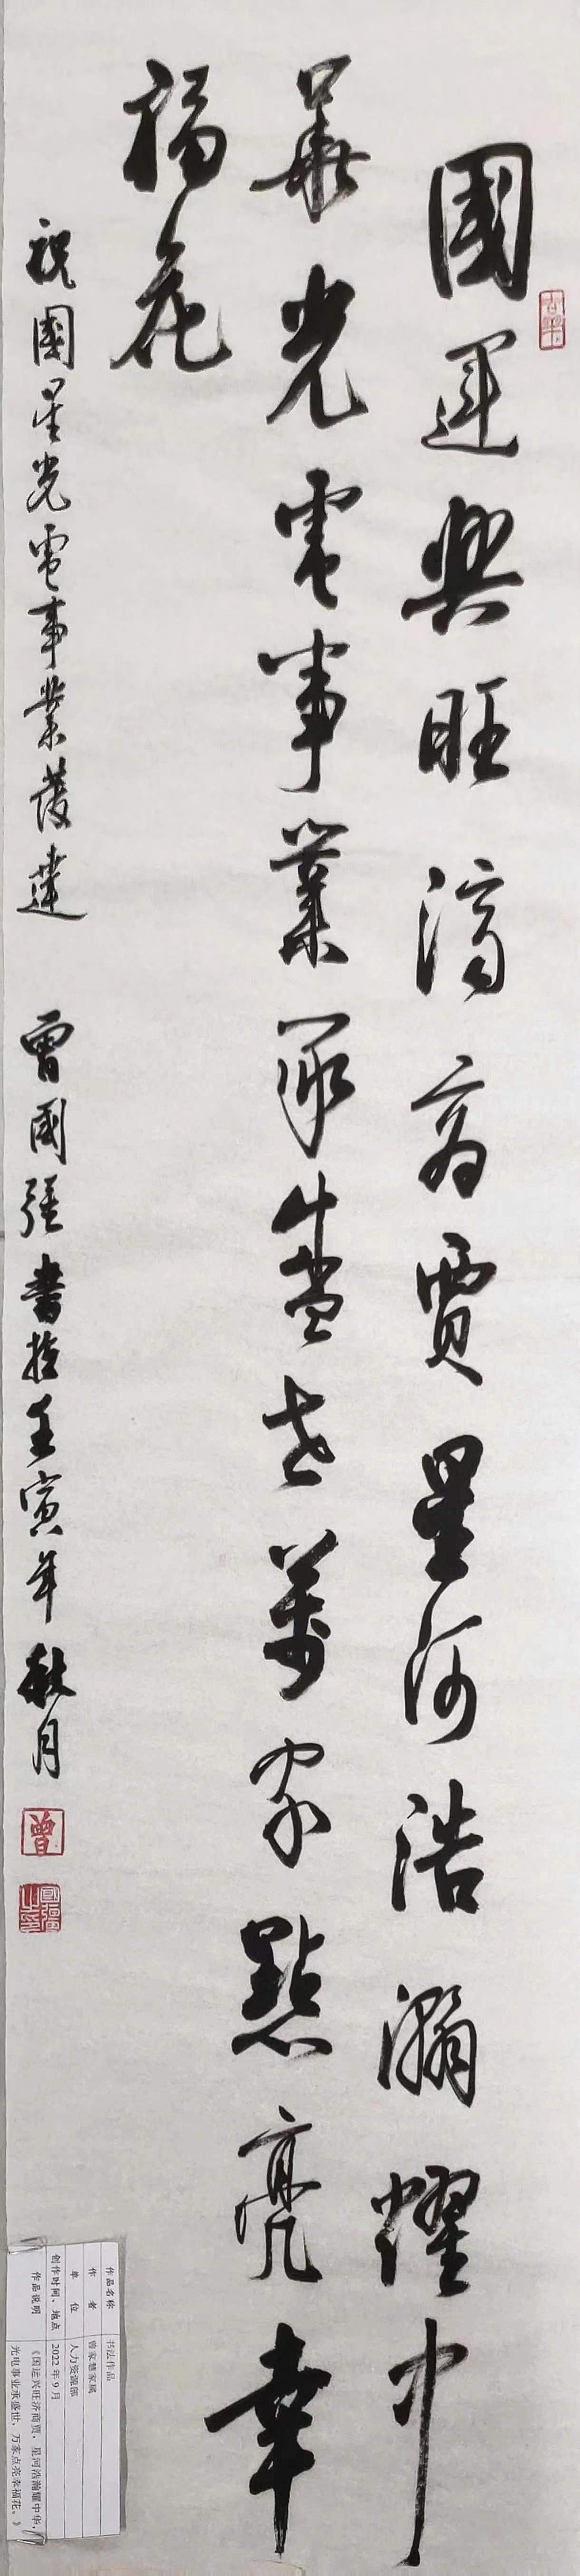 國運興旺濟商賈星河浩瀚耀中
華光電事業承盛世萬家點亮幸
福花
祝國星光電事業發達 曾國強書於壬寅年秋月
曾
作品名称 书法作品
作 者 曾家慧家属
单 位 人力资源部
创作时间、地点 2022年9月
作品说明 《国运兴旺济商贾，星河浩瀚耀中华，
光电事业承盛世，万家点亮幸福花。》